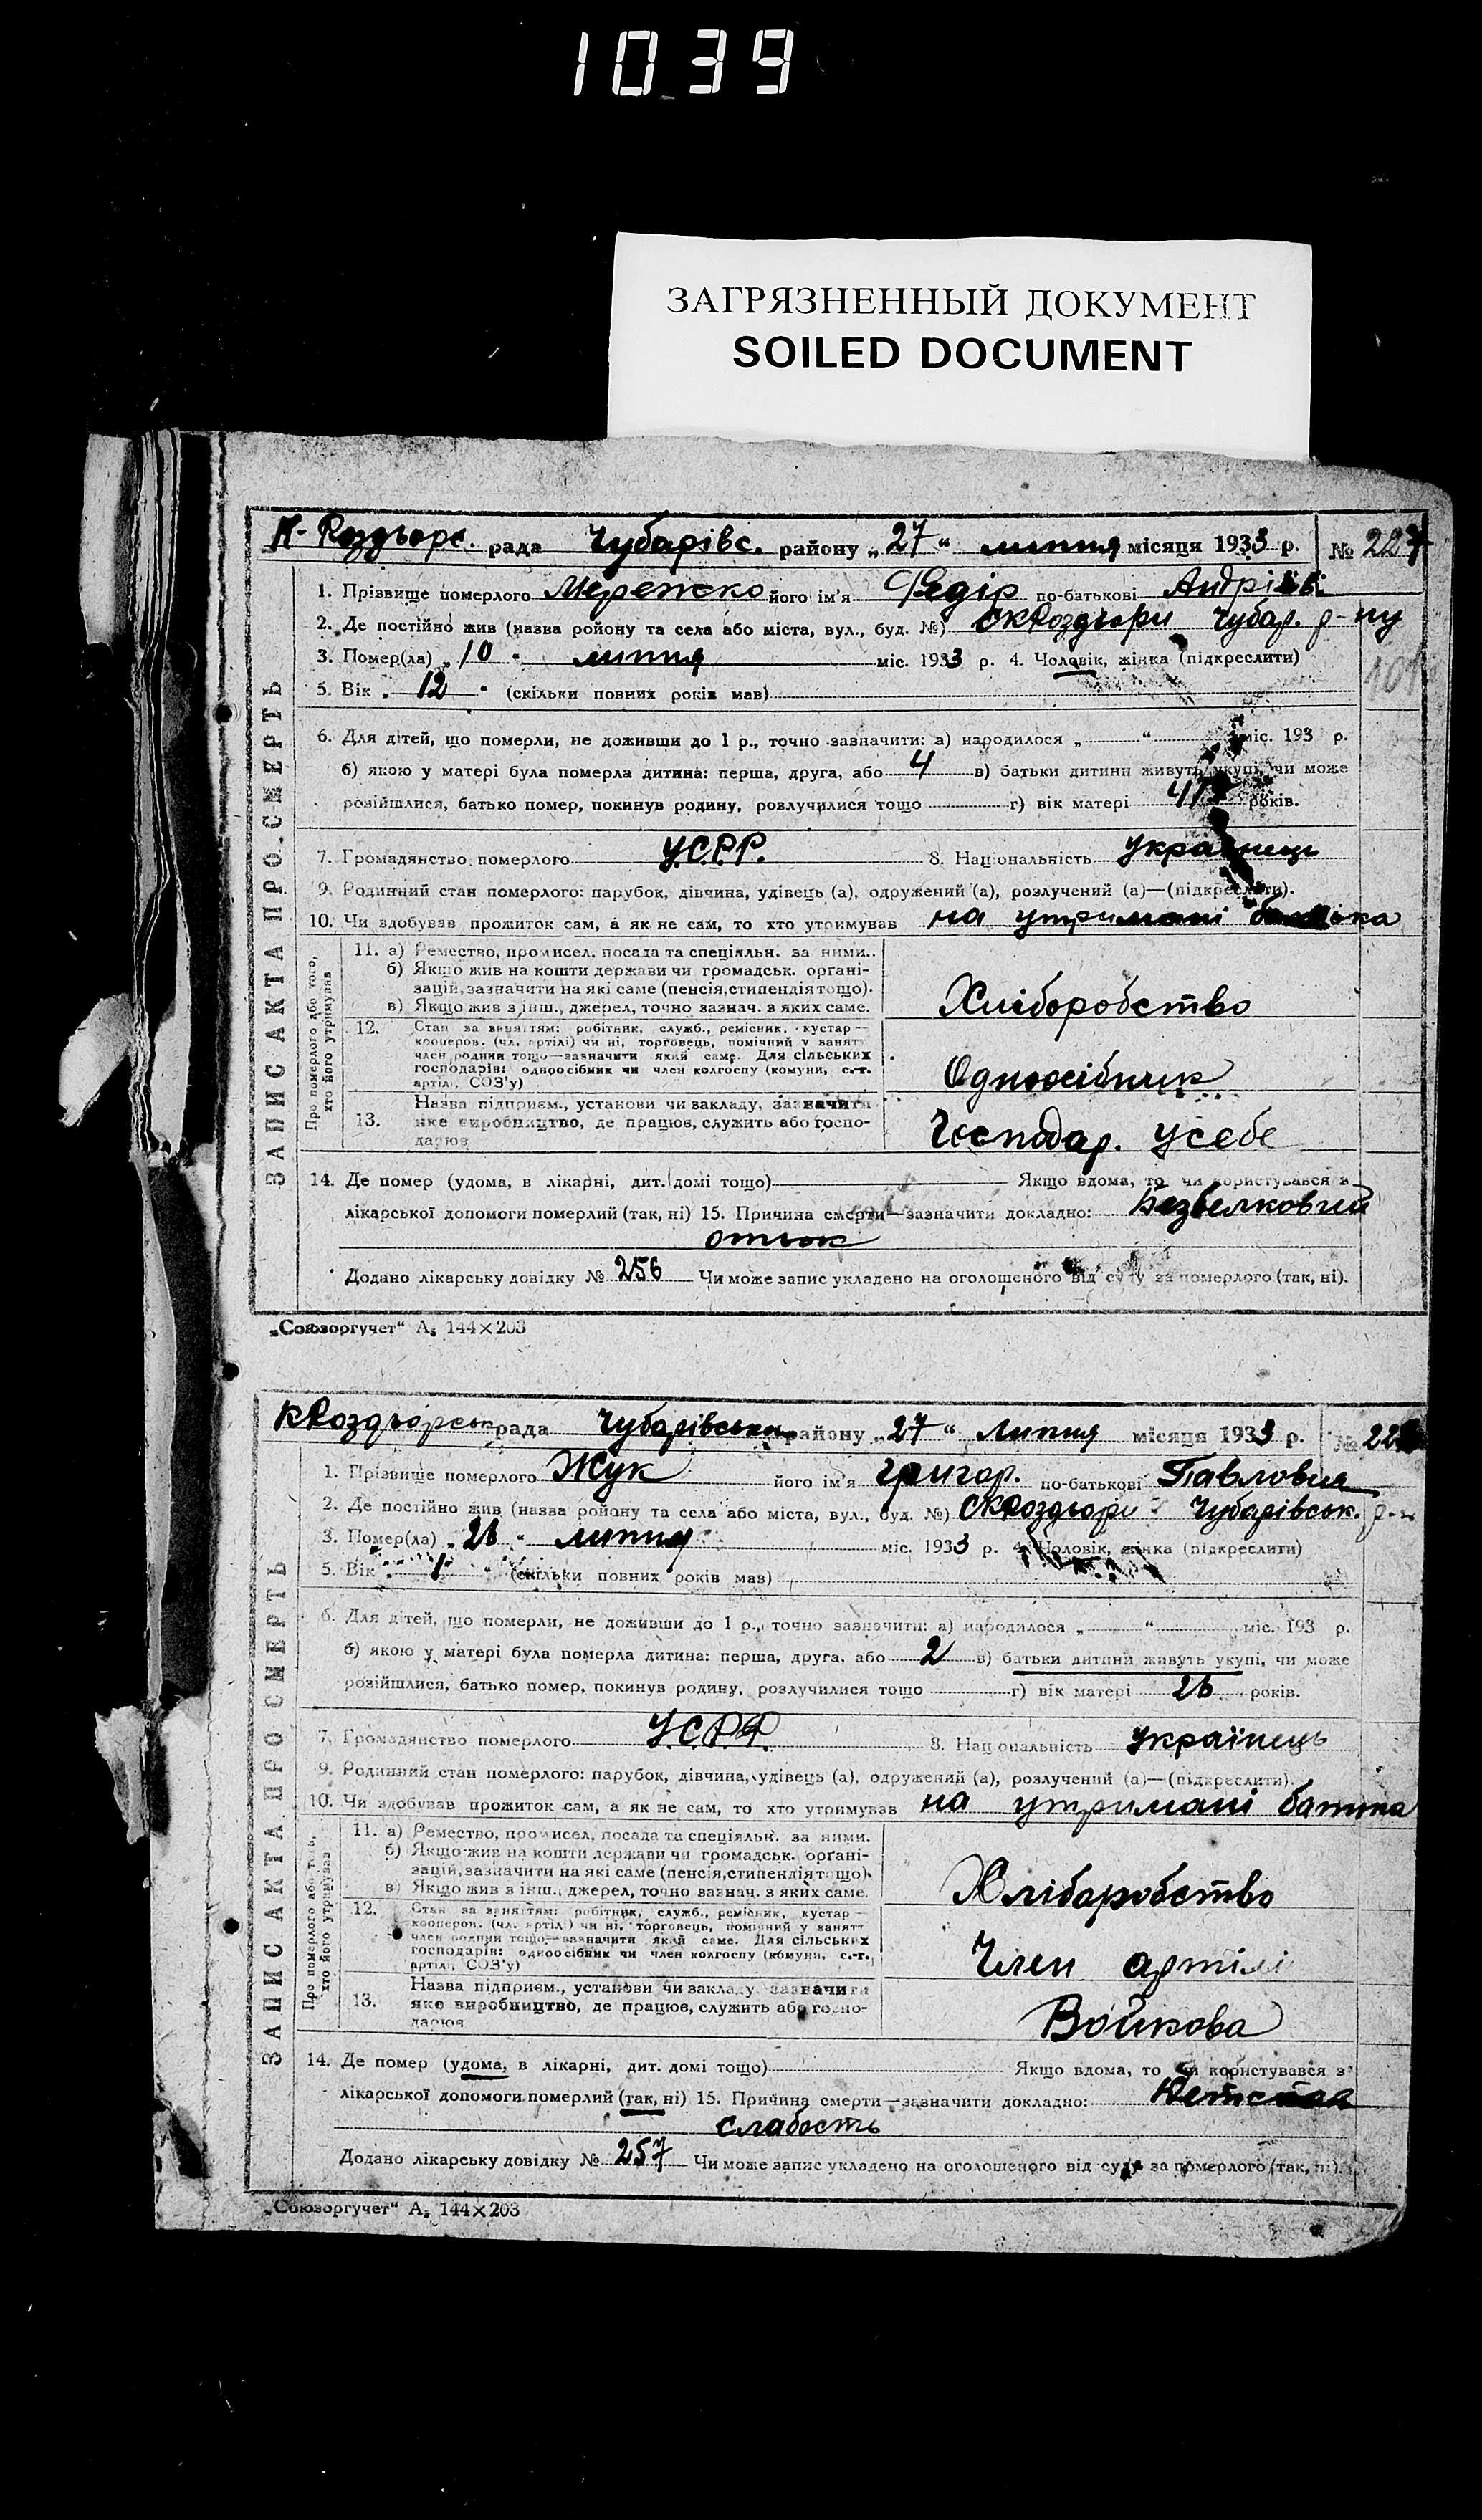 1039
ЗАГРЯЗНЕННЫЙ ДОКУМЕНТ
SOILED DOCUMENT
К-Роздорс. рада Чубарівс. району „27“ липня місяця 1933 р. № 227
ЗАПИС АКТА ПРО СМЕРТЬ
1. Прізвище померлого Мережко його ім'я Федір по-батькові Андрієв.
2. Де постійно жив (назва ройону та села або міста, вул., буд. №) СКРоздори Чубар. р-ну
3. Помер(ла) „10“ липня міс. 1933 р. 4. Чоловік, жінка (підкреслити)
5. Вік „12“ (скільки повних років мав)
6. Для дітей, що померли, не доживши до 1 р., точно зазначити: а) народилося „ “ міс. 193 р.
б) якою у матері була померла дитина: перша, друга, або 4 в) батьки дитини живуть укупі, чи може
розійшлися, батько помер, покинув родину, розлучилися тощо г) вік матері 41 років.
7. Громадянство померлого У.С.Р.Р. 8. Національність українець
9. Родинний стан померлого: парубок, дівчина, удівець (а), одружений (а), розлучений (а)—(підкреслити).
10. Чи здобував прожиток сам, а як не сам, то хто утримував на утримані батька
Про померлого або того, хто його утримував
11. а) Ремество, промисел, посада та спеціяльн. за ними.
б) Якщо жив на кошти держави чи громадськ. органі-
зацій, зазначити на які саме (пенсія, стипендія тощо).
в) Якщо жив з інш., джерел, точно зазнач. з яких саме.
Хліборобство
12. Стан за заняттям: робітник, служб., ремісник, кустар—
кооперов. (чл. артілі) чи ні, торговець, помічний у занятт
член родини тощо—зазначити який саме. Для сільських
господарів: одноосібник чи член колгоспу (комуни, с.-г.
артілі, СОЗ'у)
Одноосібник
13. Назва підприєм., установи чи закладу, зазначити
яке виробництво, де працює, служить або госпо-
дарює
Господар. усебе
14. Де помер (удома, в лікарні, дит. домі тощо) Якщо вдома, то чи користувався з
лікарської допомоги померлий (так, ні) 15. Причина смерти—зазначити докладно: Безбелковий
отьок
Додано лікарську довідку № 256 Чи може запис укладено на оголошеного від суду за померлого (так, ні).
„Союзоргучет“ А₅ 144×203
КРоздорськ рада Чубарівський району „27“ Липня місяця 1933 р. № 22
ЗАПИС АКТА ПРО СМЕРТЬ
1. Прізвище померлого Жук його ім'я Григор. по-батькові Павлович
2. Де постійно жив (назва ройону та села або міста, вул., буд. №) СКРоздори Чубарівськ. р-н
3. Помер(ла) „26“ липня міс. 1933 р. 4. Чоловік, жінка (підкреслити)
5. Вік „1“ (скільки повних років мав)
6. Для дітей, що померли, не доживши до 1 р., точно зазначити: а) народилося „ “ міс. 193 р.
б) якою у матері була померла дитина: перша, друга, або 2 в) батьки дитини живуть укупі, чи може
розійшлися, батько помер, покинув родину, розлучилися тощо г) вік матері 26 років.
7. Громадянство померлого У.С.Р.Р. 8. Національність українець
9. Родинний стан померлого: парубок, дівчина, удівець (а), одружений (а), розлучений (а)—(підкреслити).
10. Чи здобував прожиток сам, а як не сам, то хто утримував на утримані батька
Про померлого або того, хто його утримував
11. а) Ремество, промисел, посада та спеціяльн. за ними.
б) Якщо жив на кошти держави чи громадськ. органі-
зацій, зазначити на які саме (пенсія, стипендія тощо).
в) Якщо жив з інш., джерел, точно зазнач. з яких саме.
Хліборобство
12. Стан за заняттям: робітник, служб., ремісник, кустар—
кооперов. (чл. артілі) чи ні, торговець, помічний у занятт
член родини тощо—зазначити який саме. Для сільських
господарів: одноосібник чи член колгоспу (комуни, с.-г.
артілі, СОЗ'у)
Член артілі
13. Назва підприєм., установи чи закладу зазначити
яке виробництво, де працює, служить або госпо-
дарює
Войкова
14. Де помер (удома, в лікарні, дит. домі тощо) Якщо вдома, то чи користувався з
лікарської допомоги померлий (так, ні) 15. Причина смерти—зазначити докладно:
слабость
Додано лікарську довідку № 257 Чи може запис укладено на оголошеного від суду за померлого (так, ні).
„Союзоргучет“ А₅ 144×203